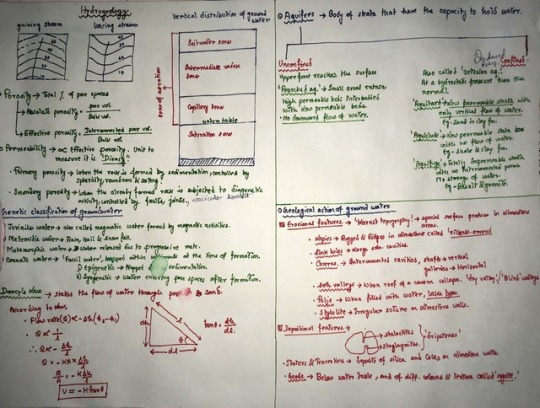 Hydrogeology
gaining stream
losing stream
Vertical distribution of ground water
Soil water zone
Intermediate vadose zone
Capillary zone
water table
Saturation zone
zone of aeration
Porosity → Total % of pore spaces
Absolute porosity = pore vol. / Bulk vol.
Effective porosity = Interconnected pore vol. / Bulk vol.
Permeability → ∝ effective porosity. Unit to
measure it is "Darcy"
Primary porosity → When the rock is formed by sedimentation controlled by
Secondary porosity → When the already formed rock is subjected to diagenetic
activity controlled by faults, joints,
Genetic classification of groundwater
Juvenile water → also called magmatic water formed by magmatic activities.
Meteoritic water → Rain, hail & snow fall.
Metamorphic water → Water released due to progressive meta.
Connate water → "Fossil water", trapped within at the time of formation.
1) Syngenetic → Trapped sedimentation
2) Epigenetic → water entering pore spaces after formation.
Darcy's law → states the flow of water through
According to him,
Flow rate (Q) ∝ -Δh (h₂-h₁)
Q ∝ 1/l
∴ Q ∝ -Δh/l
Q = -KA × Δh/l
Q/A = -K Δh/l
V = -K tanθ
dh
dl
θ
tanθ = dh/dl
Aquifers → Body of strata that have the capacity to hold water.
Unconfined
Upper front reaches the surface
"Perched aq." → Small areal extent
High permeable beds interbedded
with low permeable beds
No downward flow of water.
Confined
Also called "artesian aq."
At a hydrostatic pressure than the
normal.
Aquitard → Low permeable strata with
only vertical flow of water.
Eg- Sand in clay for.
Aquiclude → Low permeable strata
with no flow of water.
Eg- Shale & clay for.
Aquifuge → Totally impermeable strata
with no interconnected pores
No storage of water.
Eg- Basalt & granite.
Geological action of ground water.
Erosional features → "Karst topography" → special surface produce in limestone
areas.
Lapies → Rugged & Ridges in limestone called
Sink holes → large size cavities.
Caverns → Interconnected cavities, shafts → vertical
galleries → Horizontal
Solⁿ valleys → When roof of a cavern collapse. "Dry valley"/"Blind valleys"
Polje → When filled with water, lakes
Stylolite → Irregular suture in limestone walls.
Depositional features →
stalactites
stalagmites
"dripstones"
Sinters & Travertine → Deposits of silica and CaCO₃ in limestone water
Geode → Below water table, and of diff. colours & texture called "agate".